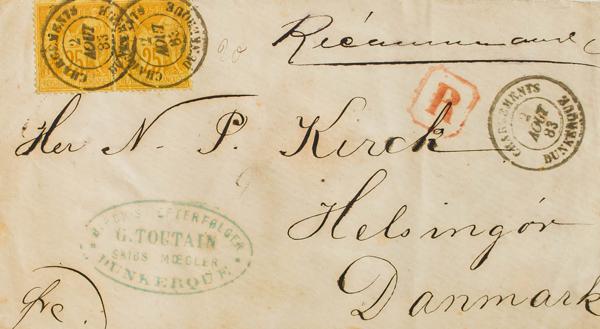 CHARGEMENTS DUNKERQUE
2
AOUT
83
25
CHARGEMENTS DUNKERQUE
2
AOUT
83
25
Récommandé
R
CHARGEMENTS DUNKERQUE
2
AOUT
83
Her N. P. Kirck
Helsingör
Danmark
EFTERFØLGER
G. TOUTAIN
SKIBS MŒGLER
DUNKERQUE